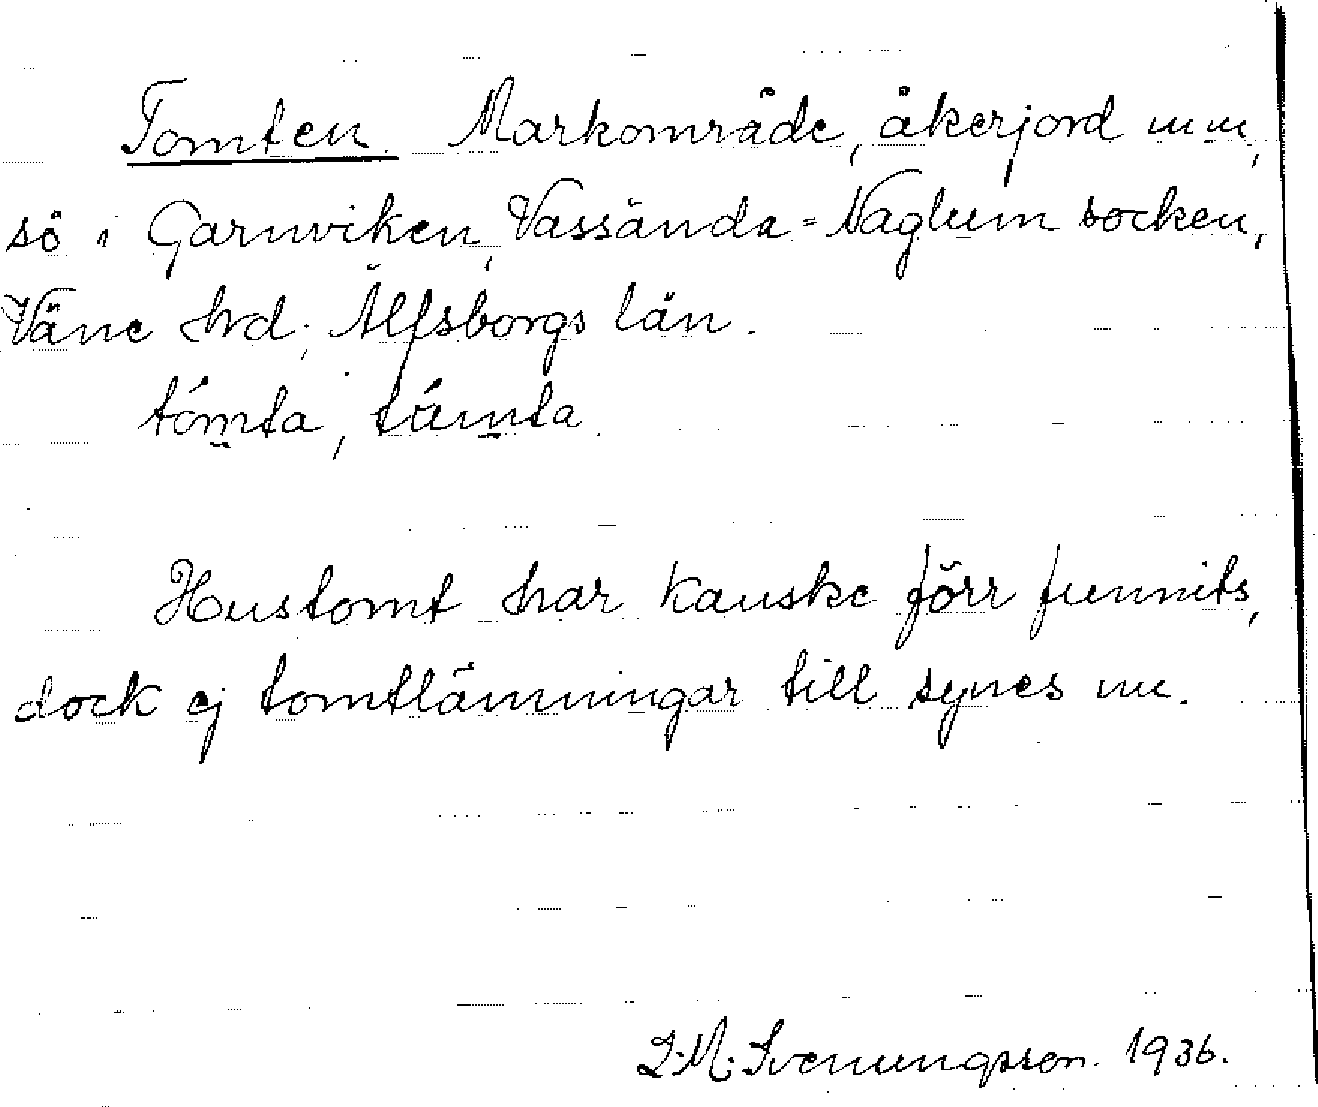 Tomten. Markområde, åkerjord mm,
sö i Garnviken, Vassända=Naglum socken,
Väne hrd; Älfsborgs län.
tómta, támta
Hustomt har kanske förr funnits,
dock ej tomtlämningar till synes nu.
J. M. Svenungsson. 1936.